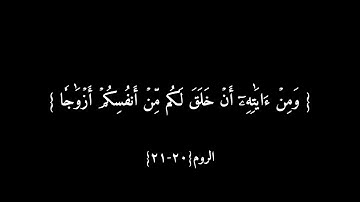 { وَمِنْ ءَايَٰتِهِۦٓ أَنْ خَلَقَ لَكُم مِّنْ أَنفُسِكُمْ أَزْوَٰجًا }
الروم{٢٠-٢١}